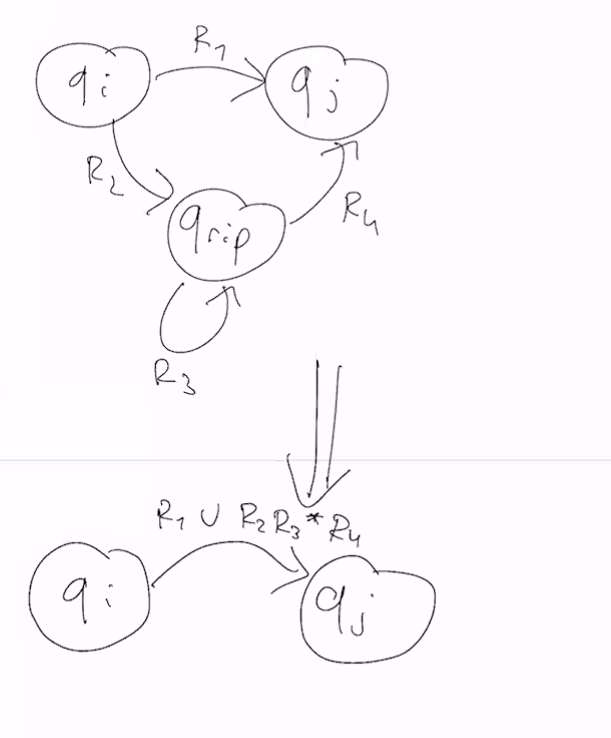 R₁
qᵢ
qⱼ
R₂
q_rip
R₄
R₃
R₁ ∪ R₂R₃*R₄
qᵢ
qⱼ